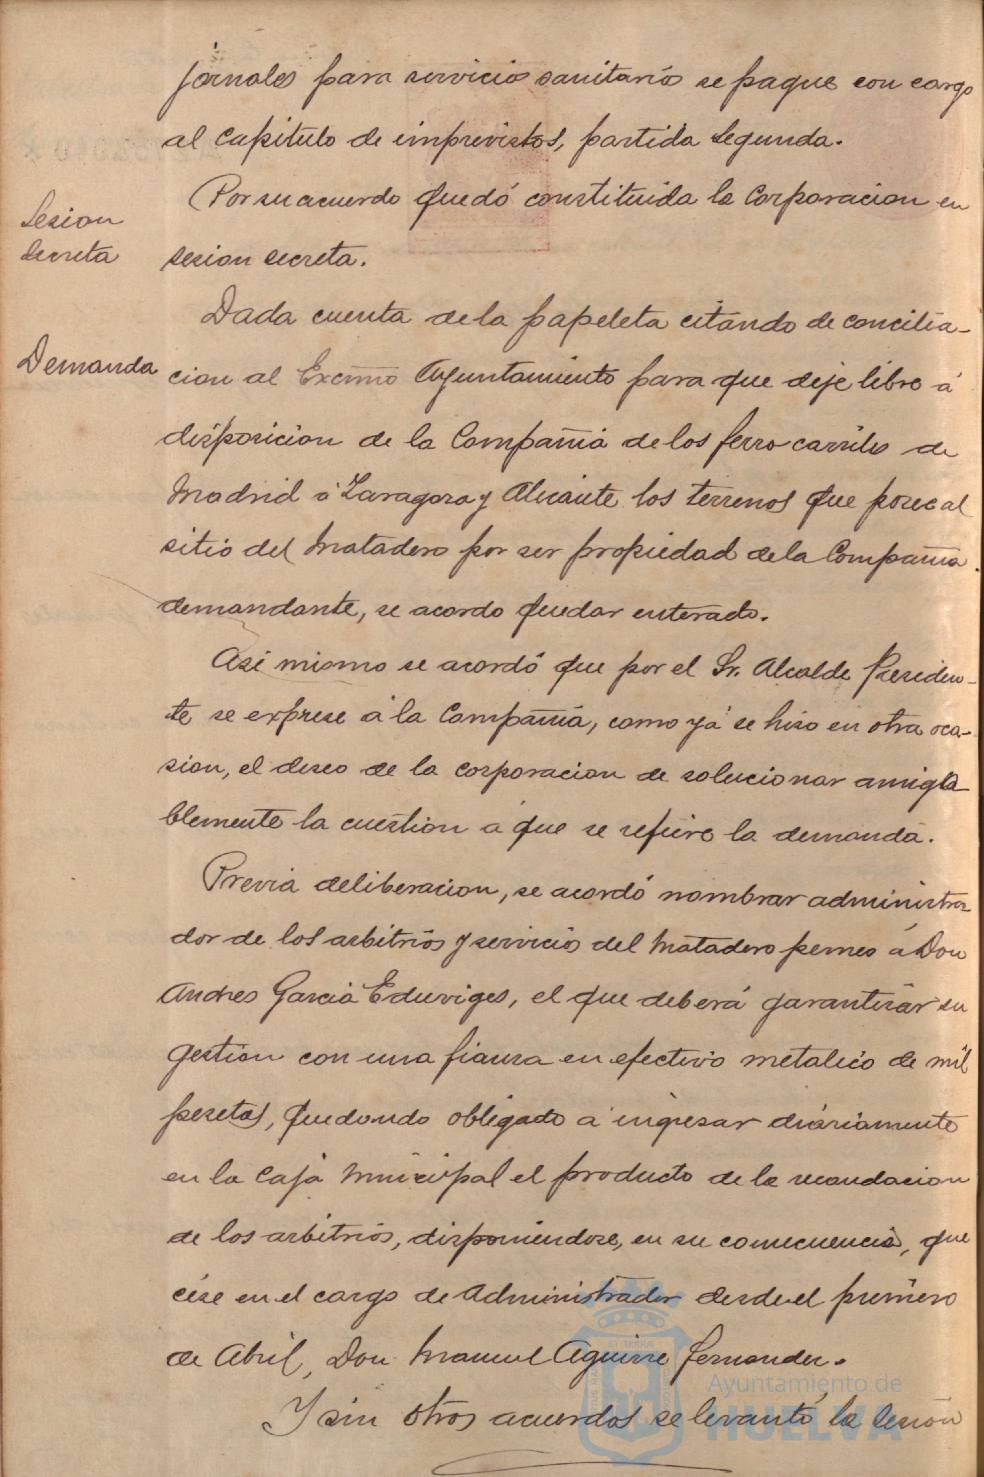 jornales para servicios sanitarios se pague con cargo
al capitulo de imprevistos, partida segunda.
Sesion
Secreta
Por su acuerdo quedó constituida la Corporacion en
sesion secreta.
Demanda
Dada cuenta de la papeleta citando de concilia-
cion al Excmo Ayuntamiento para que deje libre á
disposicion de la Compañia de los ferro carriles de
Madrid á Zaragoza y Alicante los terrenos que posee al
sitio del Matadero por ser propiedad de la Compañia
demandante, se acordo quedar enterado.
Asi mismo se acordó que por el Sr. Alcalde Presiden-
te se exprese á la Compañia, como yá se hiso en otra oca-
sion, el deseo de la corporacion de solucionar amiga
blemente la cuestion á que se refiere la demanda.
Previa deliberacion, se acordó nombrar administra-
dor de los arbitrios y servicios del Matadero á Don
Andres Garcia Eduviges, el que deberá garantizar su
gestion con una fianza en efectivo metalico de mil
pesetas, quedando obligado á ingresar diariamente
en la Caja Municipal el producto de la recaudacion
de los arbitrios, disponiendose, en su consecuencia, que
cése en el cargo de Administrador desde el primero
de Abril, Don Manuel Aguirre Fernandez.
Y sin otros acuerdos se levantó la sesion
Ayuntamiento de
HUELVA